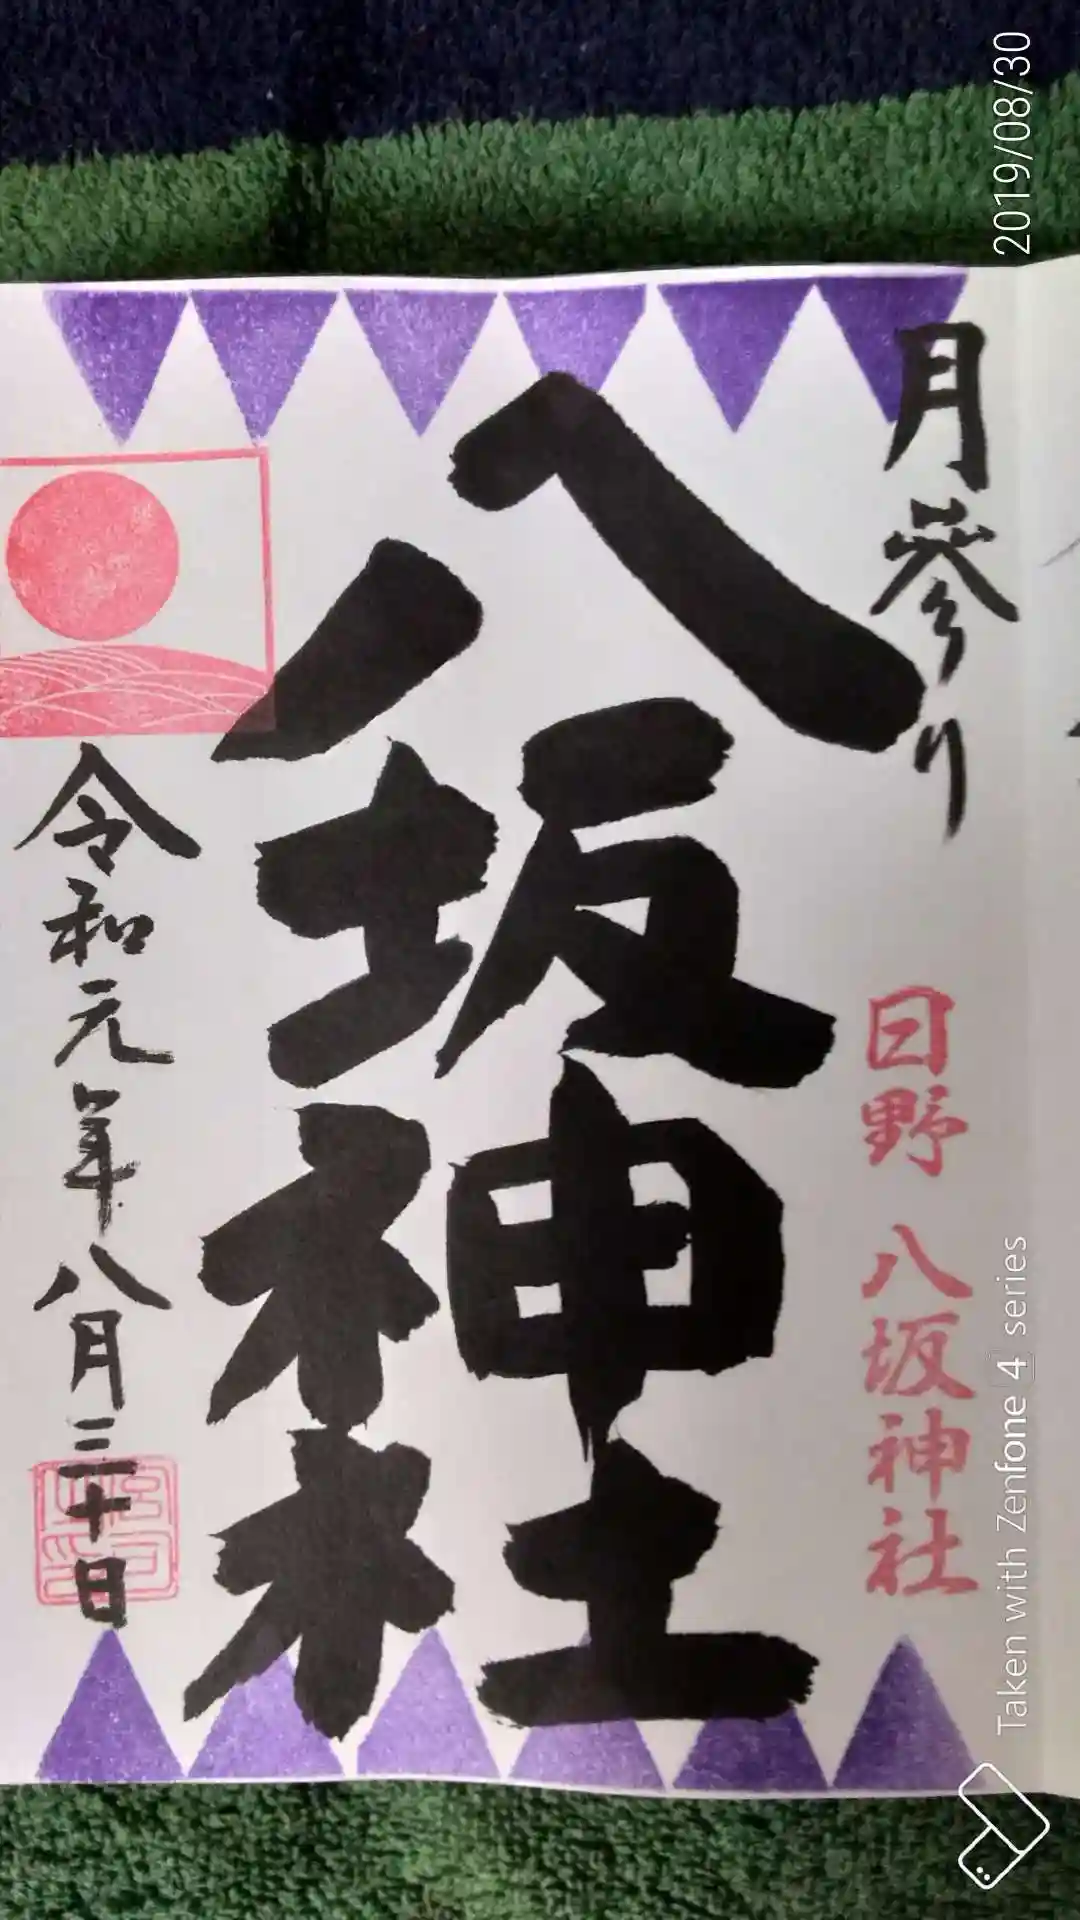 月参り
日野 八坂神社
八坂神社
令和元年八月三十日
2019/08/30
Taken with Zenfone 4 series